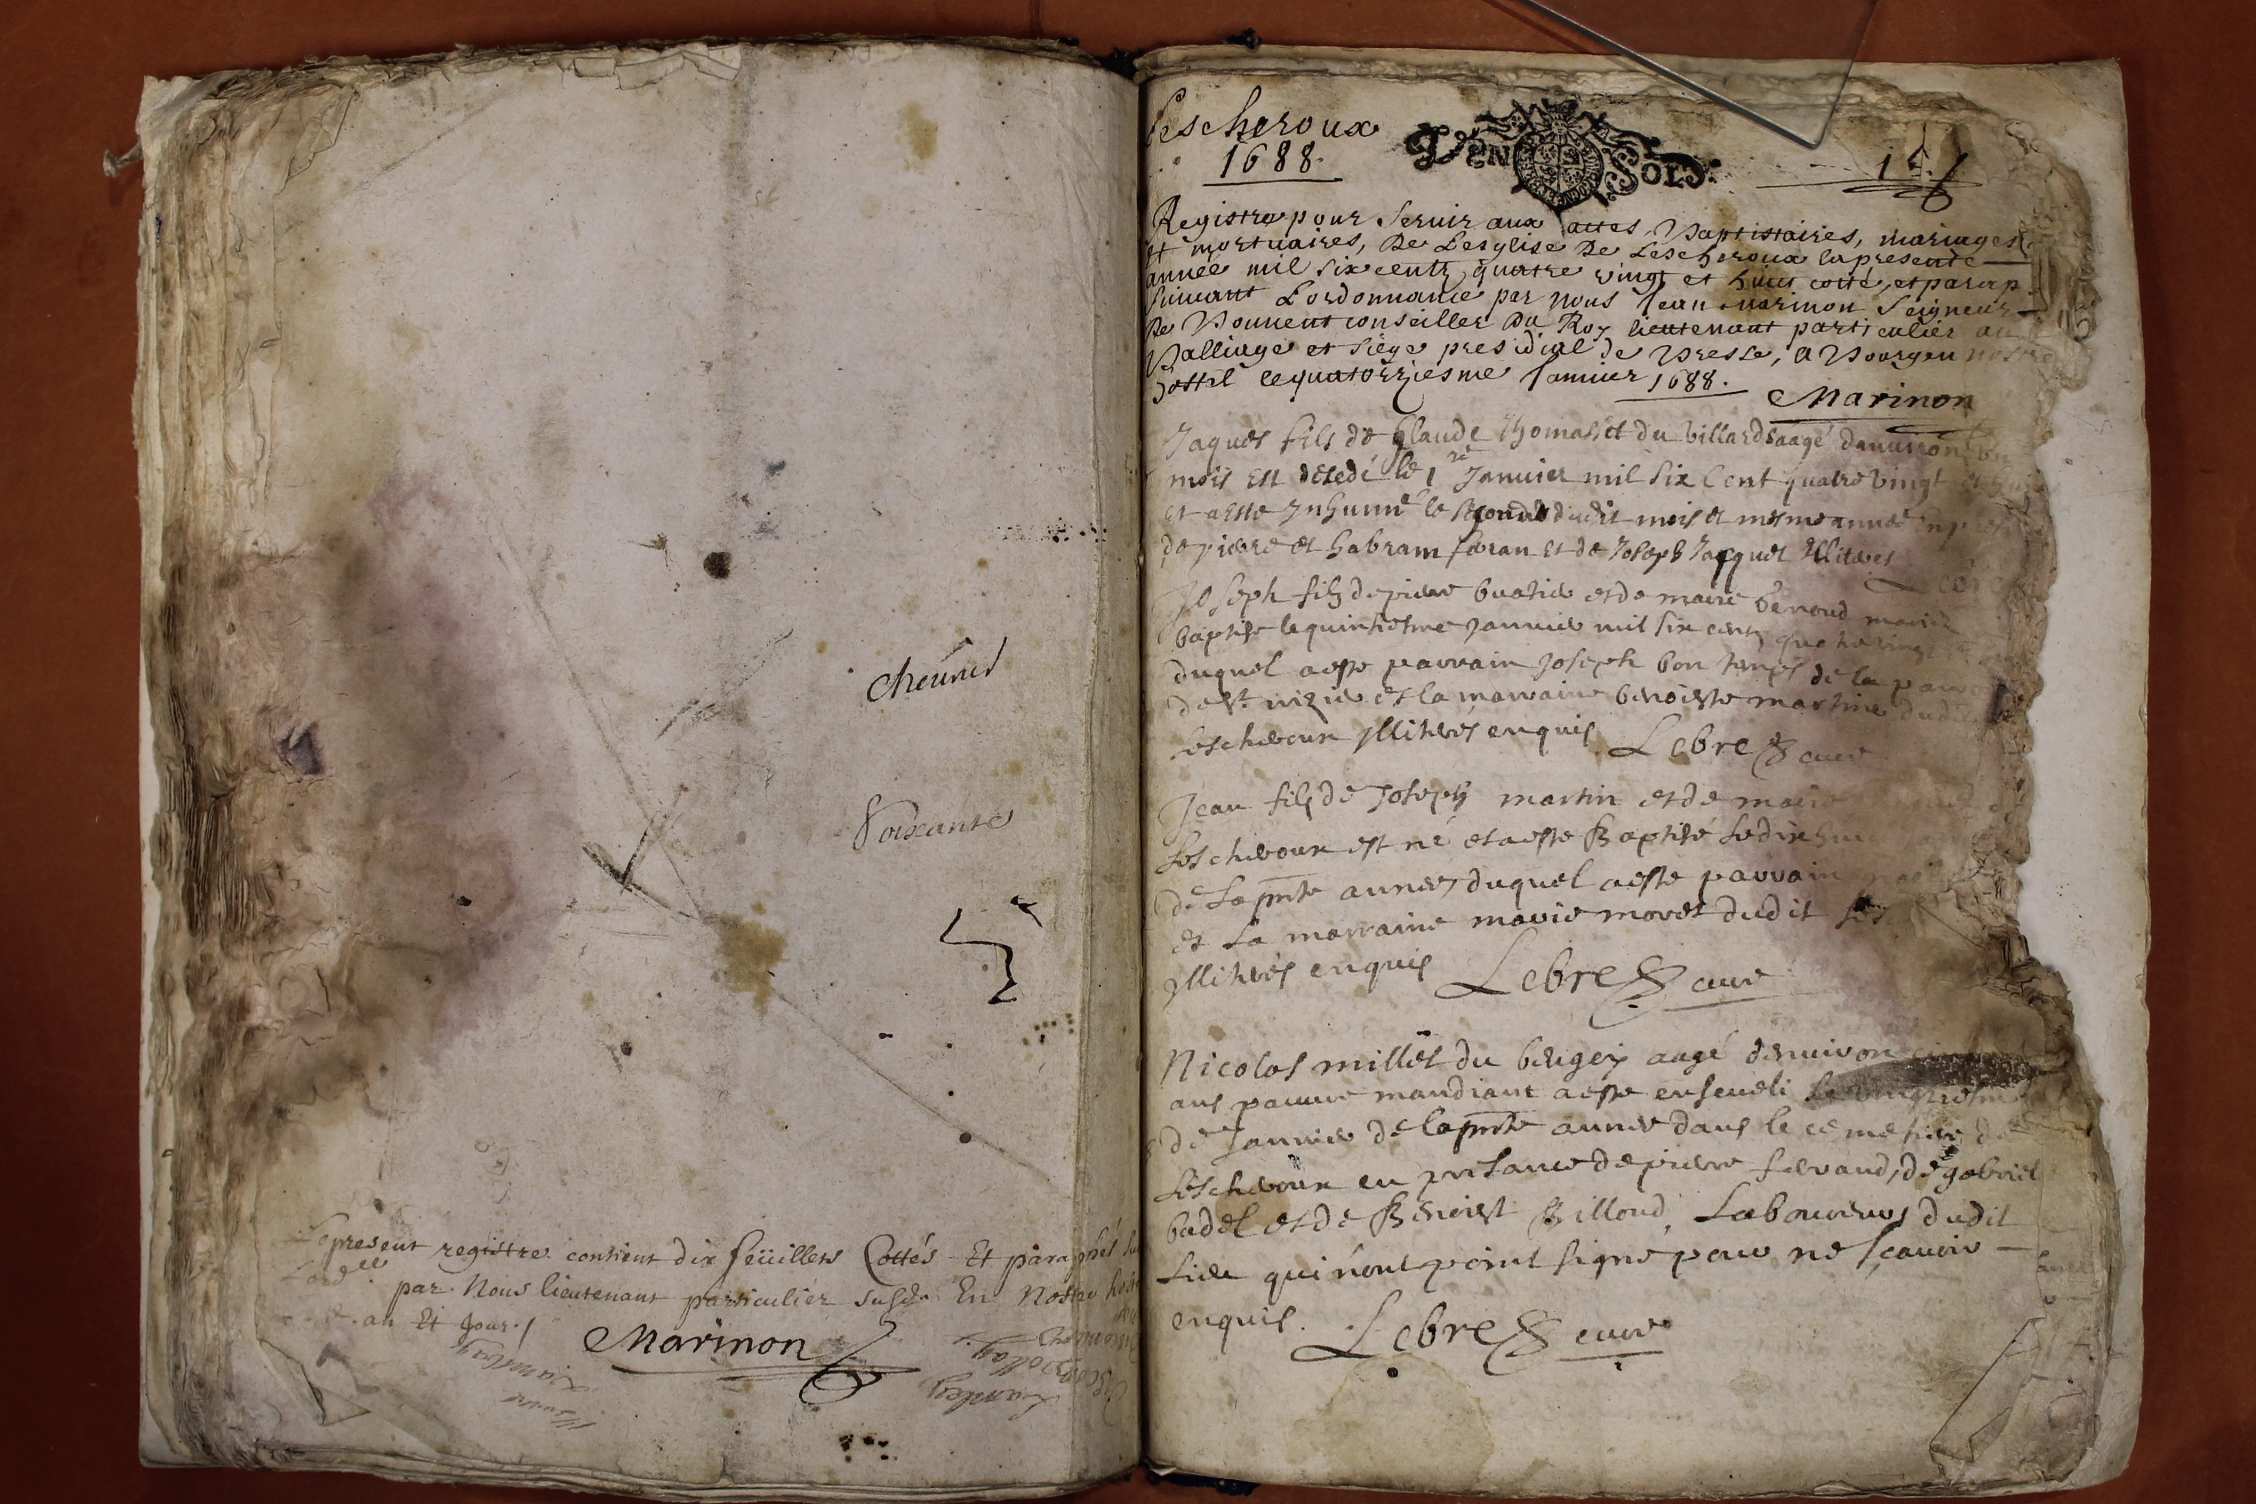 cheúnes
Soixante
Le present registre contient dix feüillets Cottés Et paraphés
par Nous lieutenant particulier susd. En Nostre hostel
an Et jour
Marinon
Lescheroux
1688.
DEN SOLD.
Registre pour Seruir aux actes Baptistaires, mariages
et mortuaires, De Lesglise De Lescheroux la presente
année mil six centz quatre vingt et huict cotté, et parap
suiuant Lordonnance par nous Jean marinon Seigneur
De Bouuent conseiller Du Roy lieutenant particulier au
Balliage et siege presidial de Bresse, a Bourg en nostre
hostel le quatorziesme Januier 1688.
Marinon
Jaques fils de Claude Thomasset du Villard aagé danuiron un
mois Est decedé le 1er Januier mil six Cent quatre vingt et
et a esté Inhumé le second dudit mois et mesme année
de pierre et habram feran et de Joseph Jacquet Illitres
Joseph filz de pierre buatier et de marie benoud
baptise le quinziesme Januier mil six cent quatre vingt
duquel a este parrain Joseph bon temps de la paro
de st nizier et la marraine benoiste martine dudit
Lescheroux Illitrés enquis Lebre curé
Jean filz de Joseph martin et de marie
Lescheroux est né et a este Baptisé Le dix huit
de La pnte année, duquel a este parrain
et La marraine marie moret dudit Les
Illitrés enquis Lebre curé
Nicolas millet du beugey aagé denuiron
ans pauure mandiant a este enseueli Le vingtiesme
de Januier de la pnte année dans le cemetiere de
Lescheroux en presance de pierre feraud, de gabriel
badel et de Benoist Billoud Laboureurs dudit
Lieu qui n'ont point signé pour ne scauoir
enquis. Lebre curé